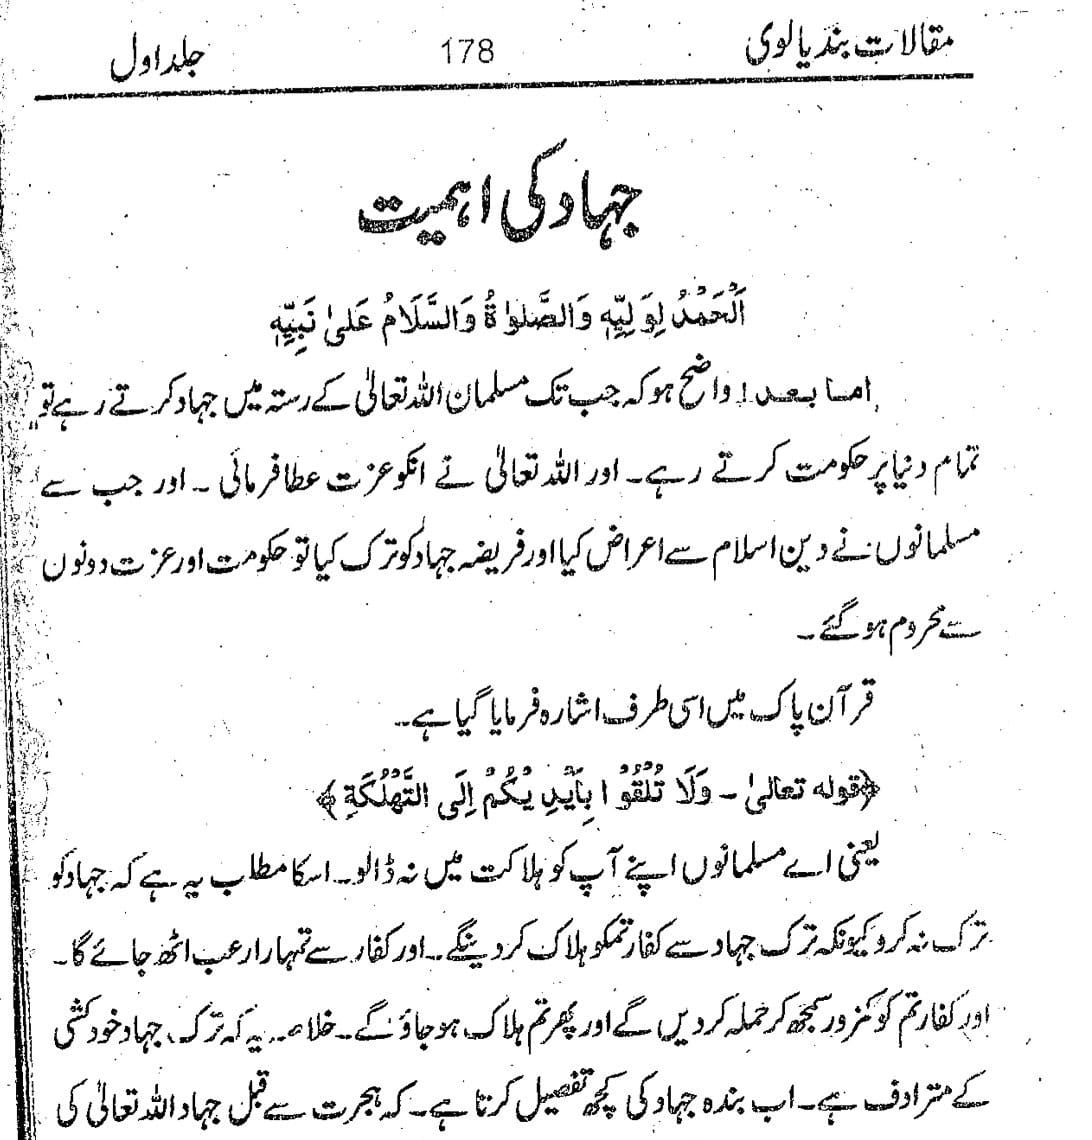 مقالات بندیالوی 178 جلد اول
جہاد کی اہمیت
اَلْحَمْدُ لِوَلِیِّہٖ وَالصَّلوٰۃُ وَالسَّلَامُ عَلیٰ نَبِیِّہٖ
امـا بـعـد! واضح ہو کہ جب تک مسلمان اللہ تعالیٰ کے رستہ میں جہاد کرتے رہے تو
تمام دنیا پر حکومت کرتے رہے۔ اور اللہ تعالیٰ نے انکو عزت عطا فرمائی ۔ اور جب سے
مسلمانوں نے دین اسلام سے اعراض کیا اور فریضہ جہاد کو ترک کیا تو حکومت اور عزت دونوں
سے محروم ہو گئے ۔
قرآن پاک میں اسی طرف اشارہ فرمایا گیا ہے۔
﴿قولہ تعالیٰ ۔ وَلَا تُلْقُوْا بِاَیْدِیْکُمْ اِلَی التَّھْلُکَۃِ﴾
یعنی اے مسلمانوں اپنے آپ کو ہلاکت میں نہ ڈالو۔ اسکا مطلب یہ ہے کہ جہاد کو
ترک نہ کرو کیونکہ ترک جہاد سے کفار تمکو ہلاک کر دینگے۔ اور کفار سے تمہارا رعب اٹھ جائے گا۔
اور کفار تم کو کمزور سمجھ کر حملہ کر دیں گے اور پھر تم ہلاک ہو جاؤ گے۔ خلاصہ یہ کہ ترک جہاد خودکشی
کے مترادف ہے۔ اب بندہ جہاد کی کچھ تفصیل کرتا ہے۔ کہ ہجرت سے قبل جہاد اللہ تعالیٰ کی